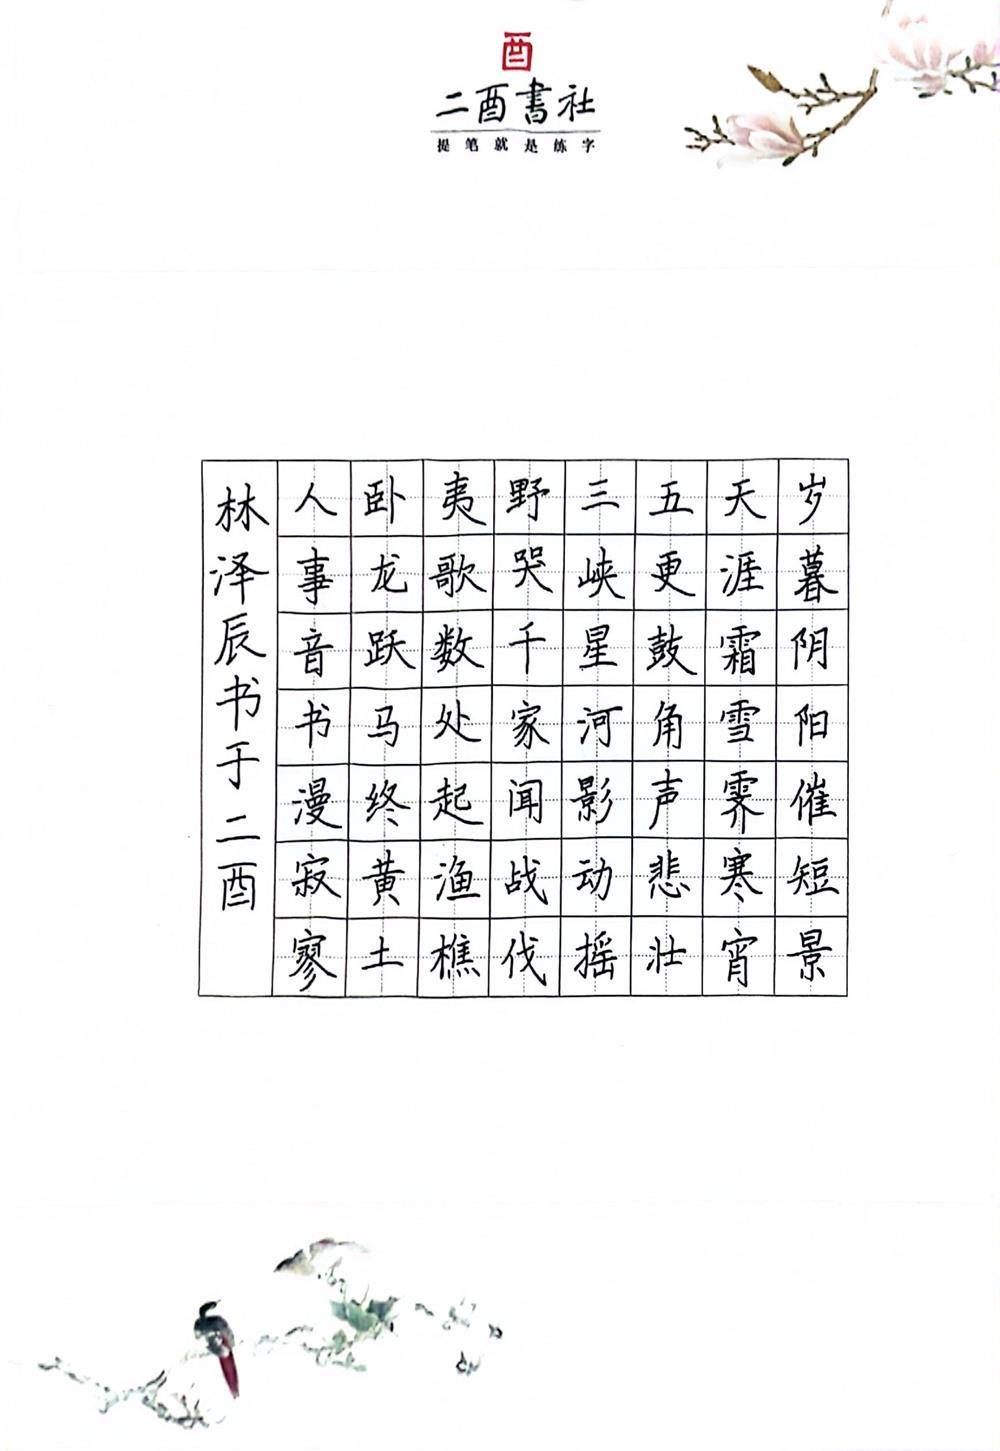 酉
二酉書社
提笔就是练字
岁暮阴阳催短景
天涯霜雪霁寒宵
五更鼓角声悲壮
三峡星河影动摇
野哭千家闻战伐
夷歌数处起渔樵
卧龙跃马终黄土
人事音书漫寂寥
林泽辰书于二酉